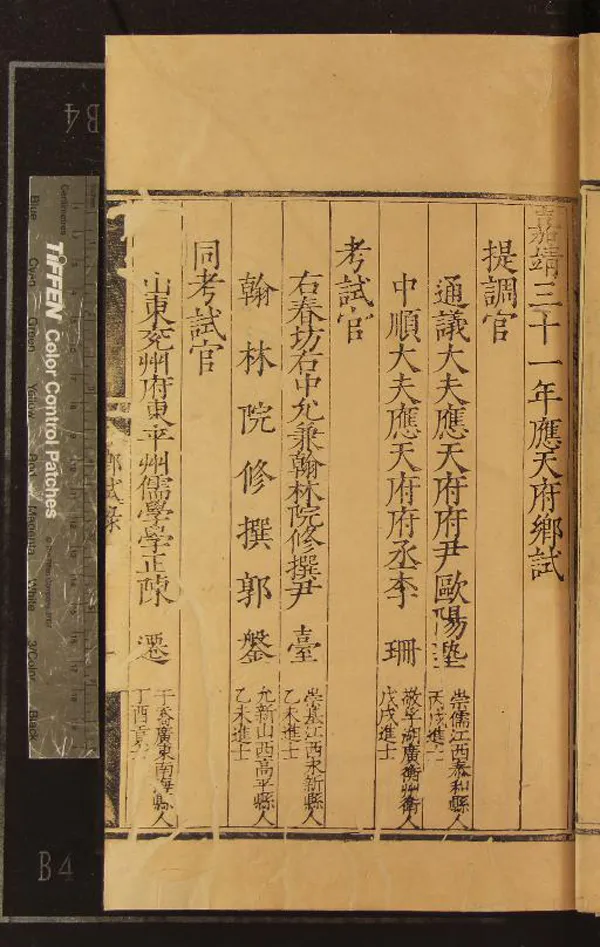 嘉靖三十一年應天府鄉試
提調官
通議大夫應天府府尹歐陽塾 崇儒江西泰和縣人
丙戌進士
中順大夫應天府府丞李 珊
戊戌進士
考試官
右春坊右中允兼翰林院修撰尹 臺 崇基江西永新縣人
乙未進士
翰林院修撰郭鎜 允新山西高平縣人
乙未進士
同考試官
山東兗州府東平州儒學學正陳 遷 于喬廣東南海縣人
丁酉貢士
鄉試錄
TIFFEN Color Control Patches
Centimetres
Blue
Cyan
Green
Yellow
Red
Magenta
White
3/Color
Black
B4
B4